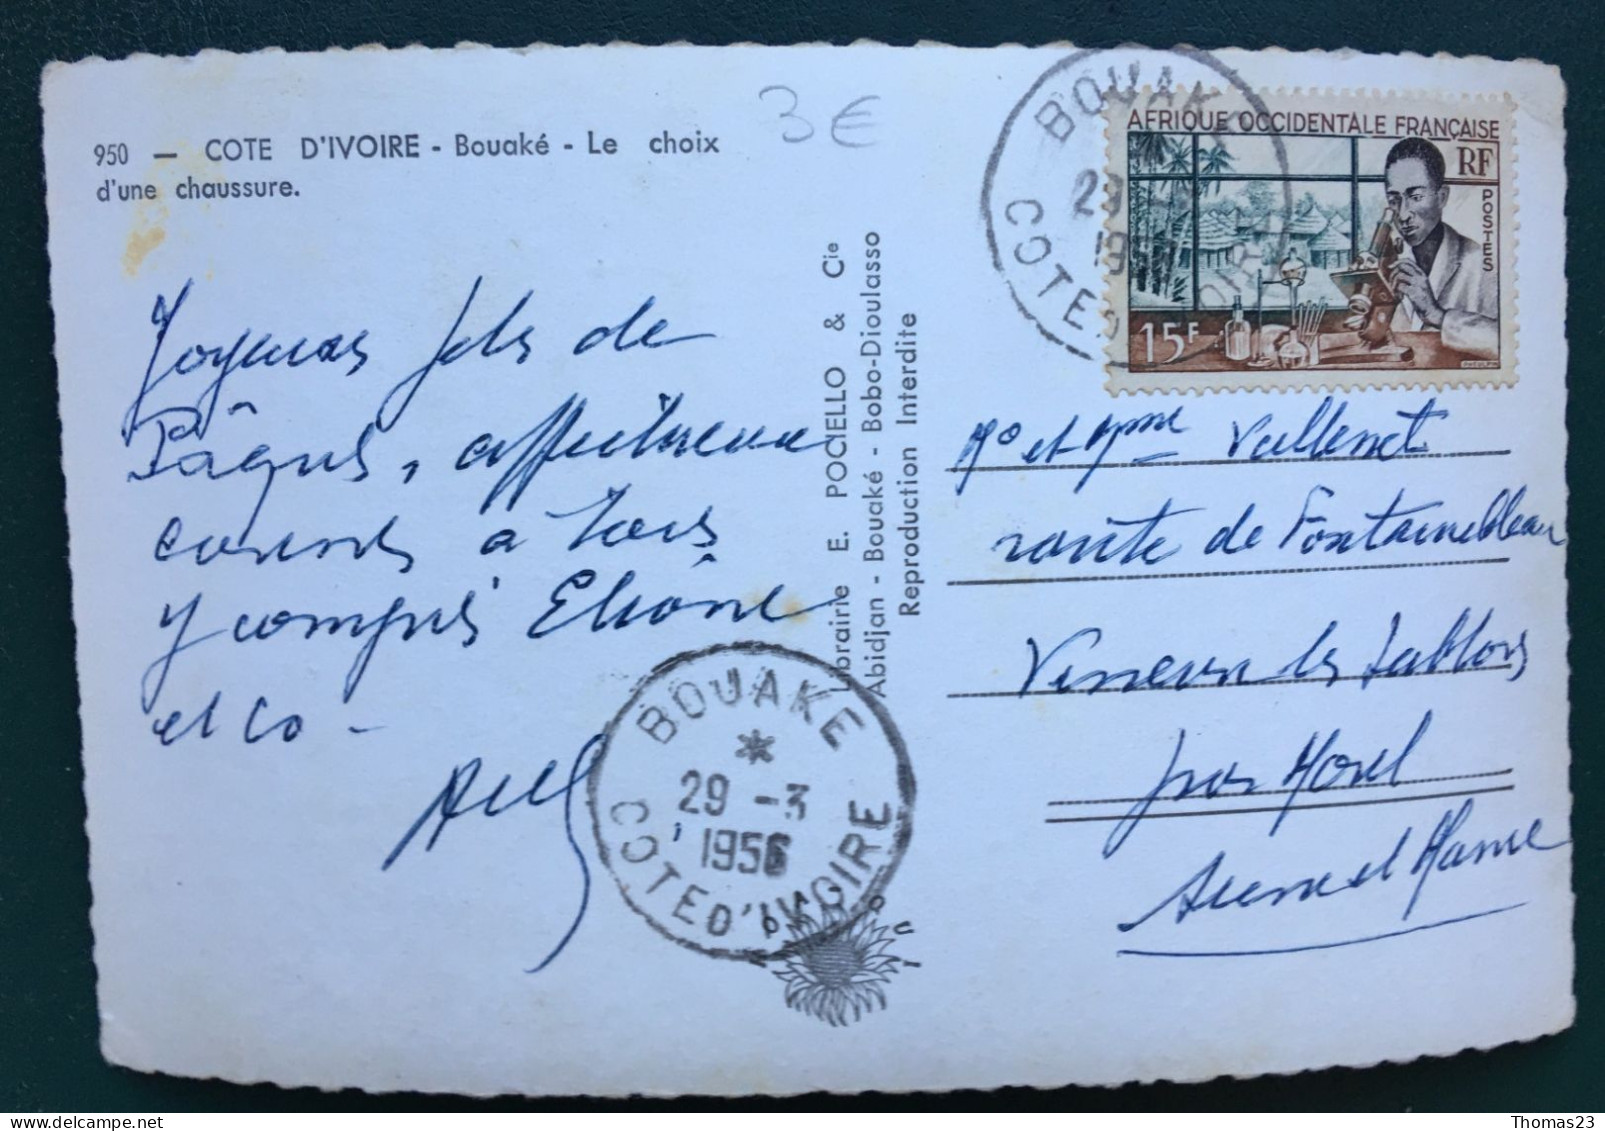 950 — COTE D'IVOIRE - Bouaké - Le choix
d'une chaussure.
3€
Joyeuses fêtes de
Pâques, affectueux
à tous
y compris Eliane
et Co -
Librairie E. POCIELLO & Cie
Abidjan - Bouaké - Bobo-Dioulasso
Reproduction Interdite
BOUAKE
29 -3
1956
COTE D'IVOIRE
BOUAKE
29
COTE D'IVOIRE
AFRIQUE OCCIDENTALE FRANÇAISE
RF
POSTES
15F
Mr et Mme Vallenet
route de Fontainebleau
Veneux les Sablons
par Moret
Seine et Marne
Thomas23